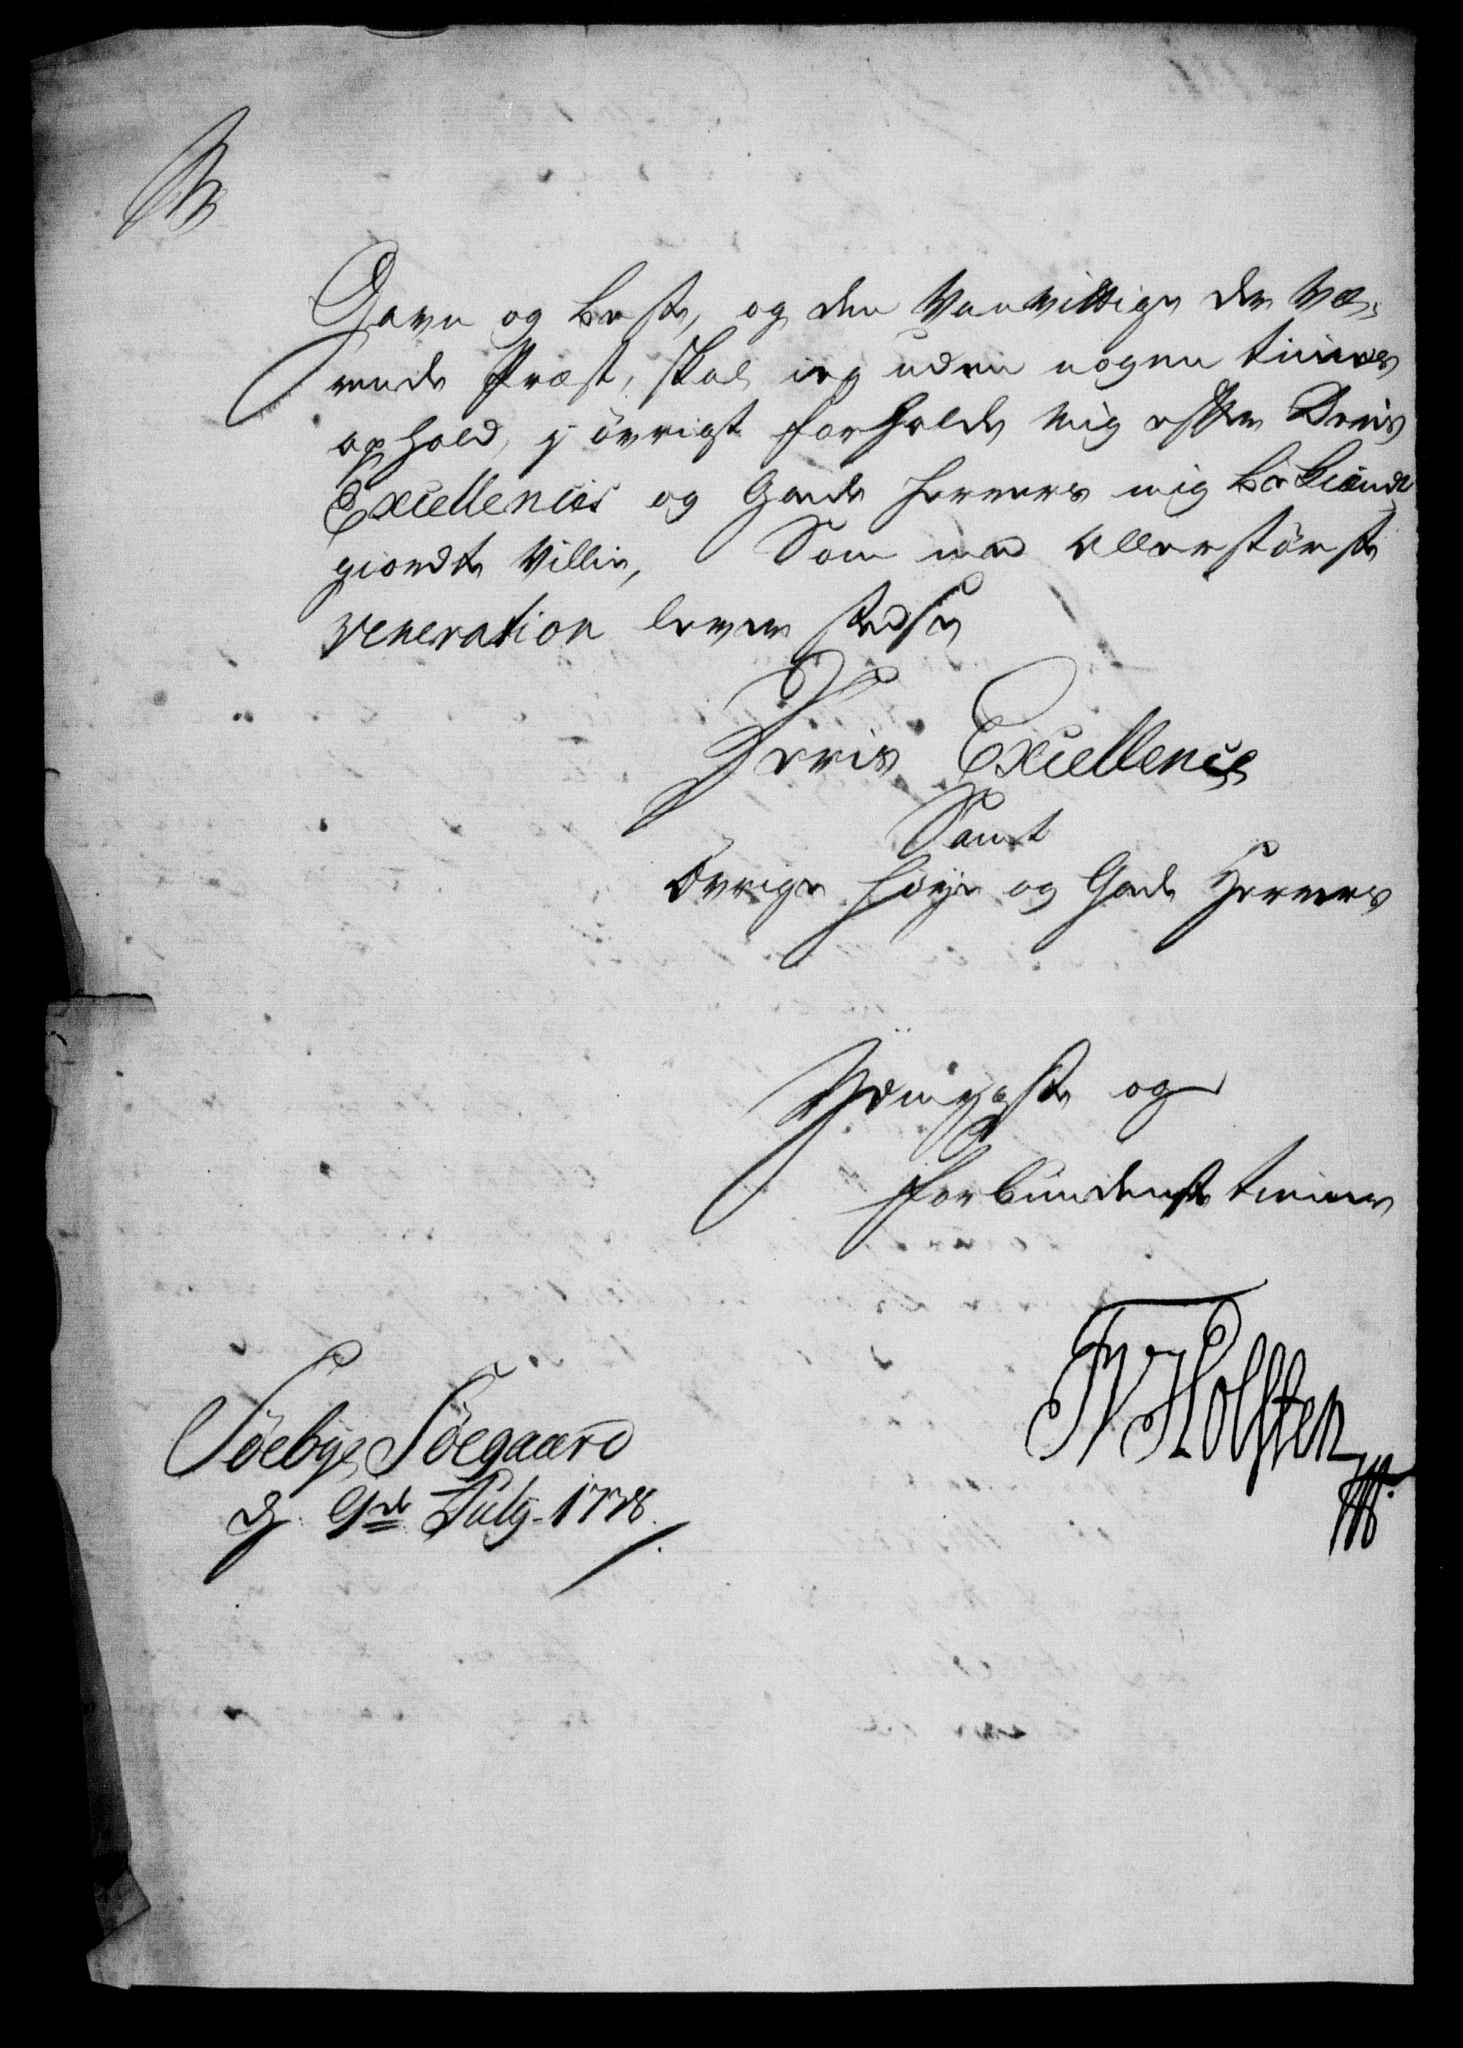 Gavn og beste, og den Vanvittige der Væ-
rende Præst, skal ieg uden nogen timers
ophold, j øvrigt forholde mig efter Deris
Excellences og Gode herrers mig bekiændt
giordte Villie, Som med allerstørste
veneration lever stedse
Deris Excellences
Samt
Øvrige høye og Gode Herrers
Ydmygste og
forbundenste tiener
FV Holsten
Søebye Søegaard
d. 9de July 1738.